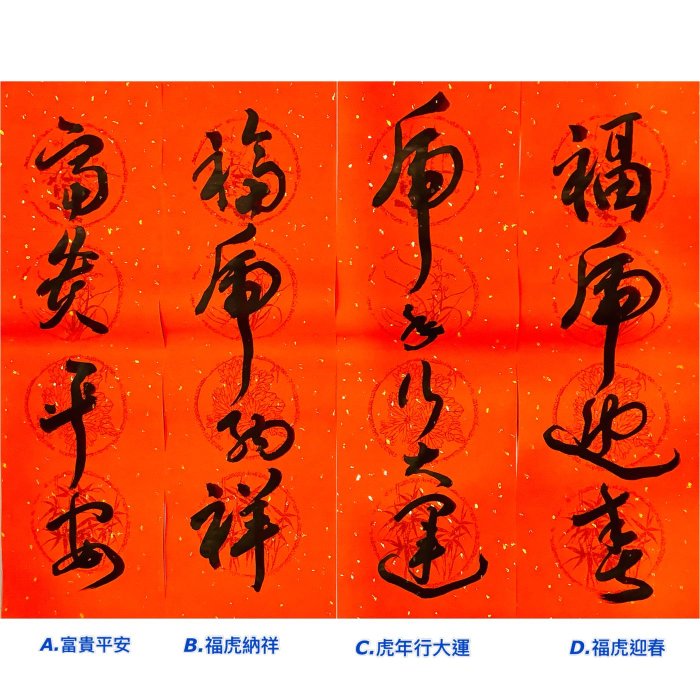 富貴平安
福虎納祥
虎年行大運
福虎迎春
A.富貴平安
B.福虎納祥
C.虎年行大運
D.福虎迎春